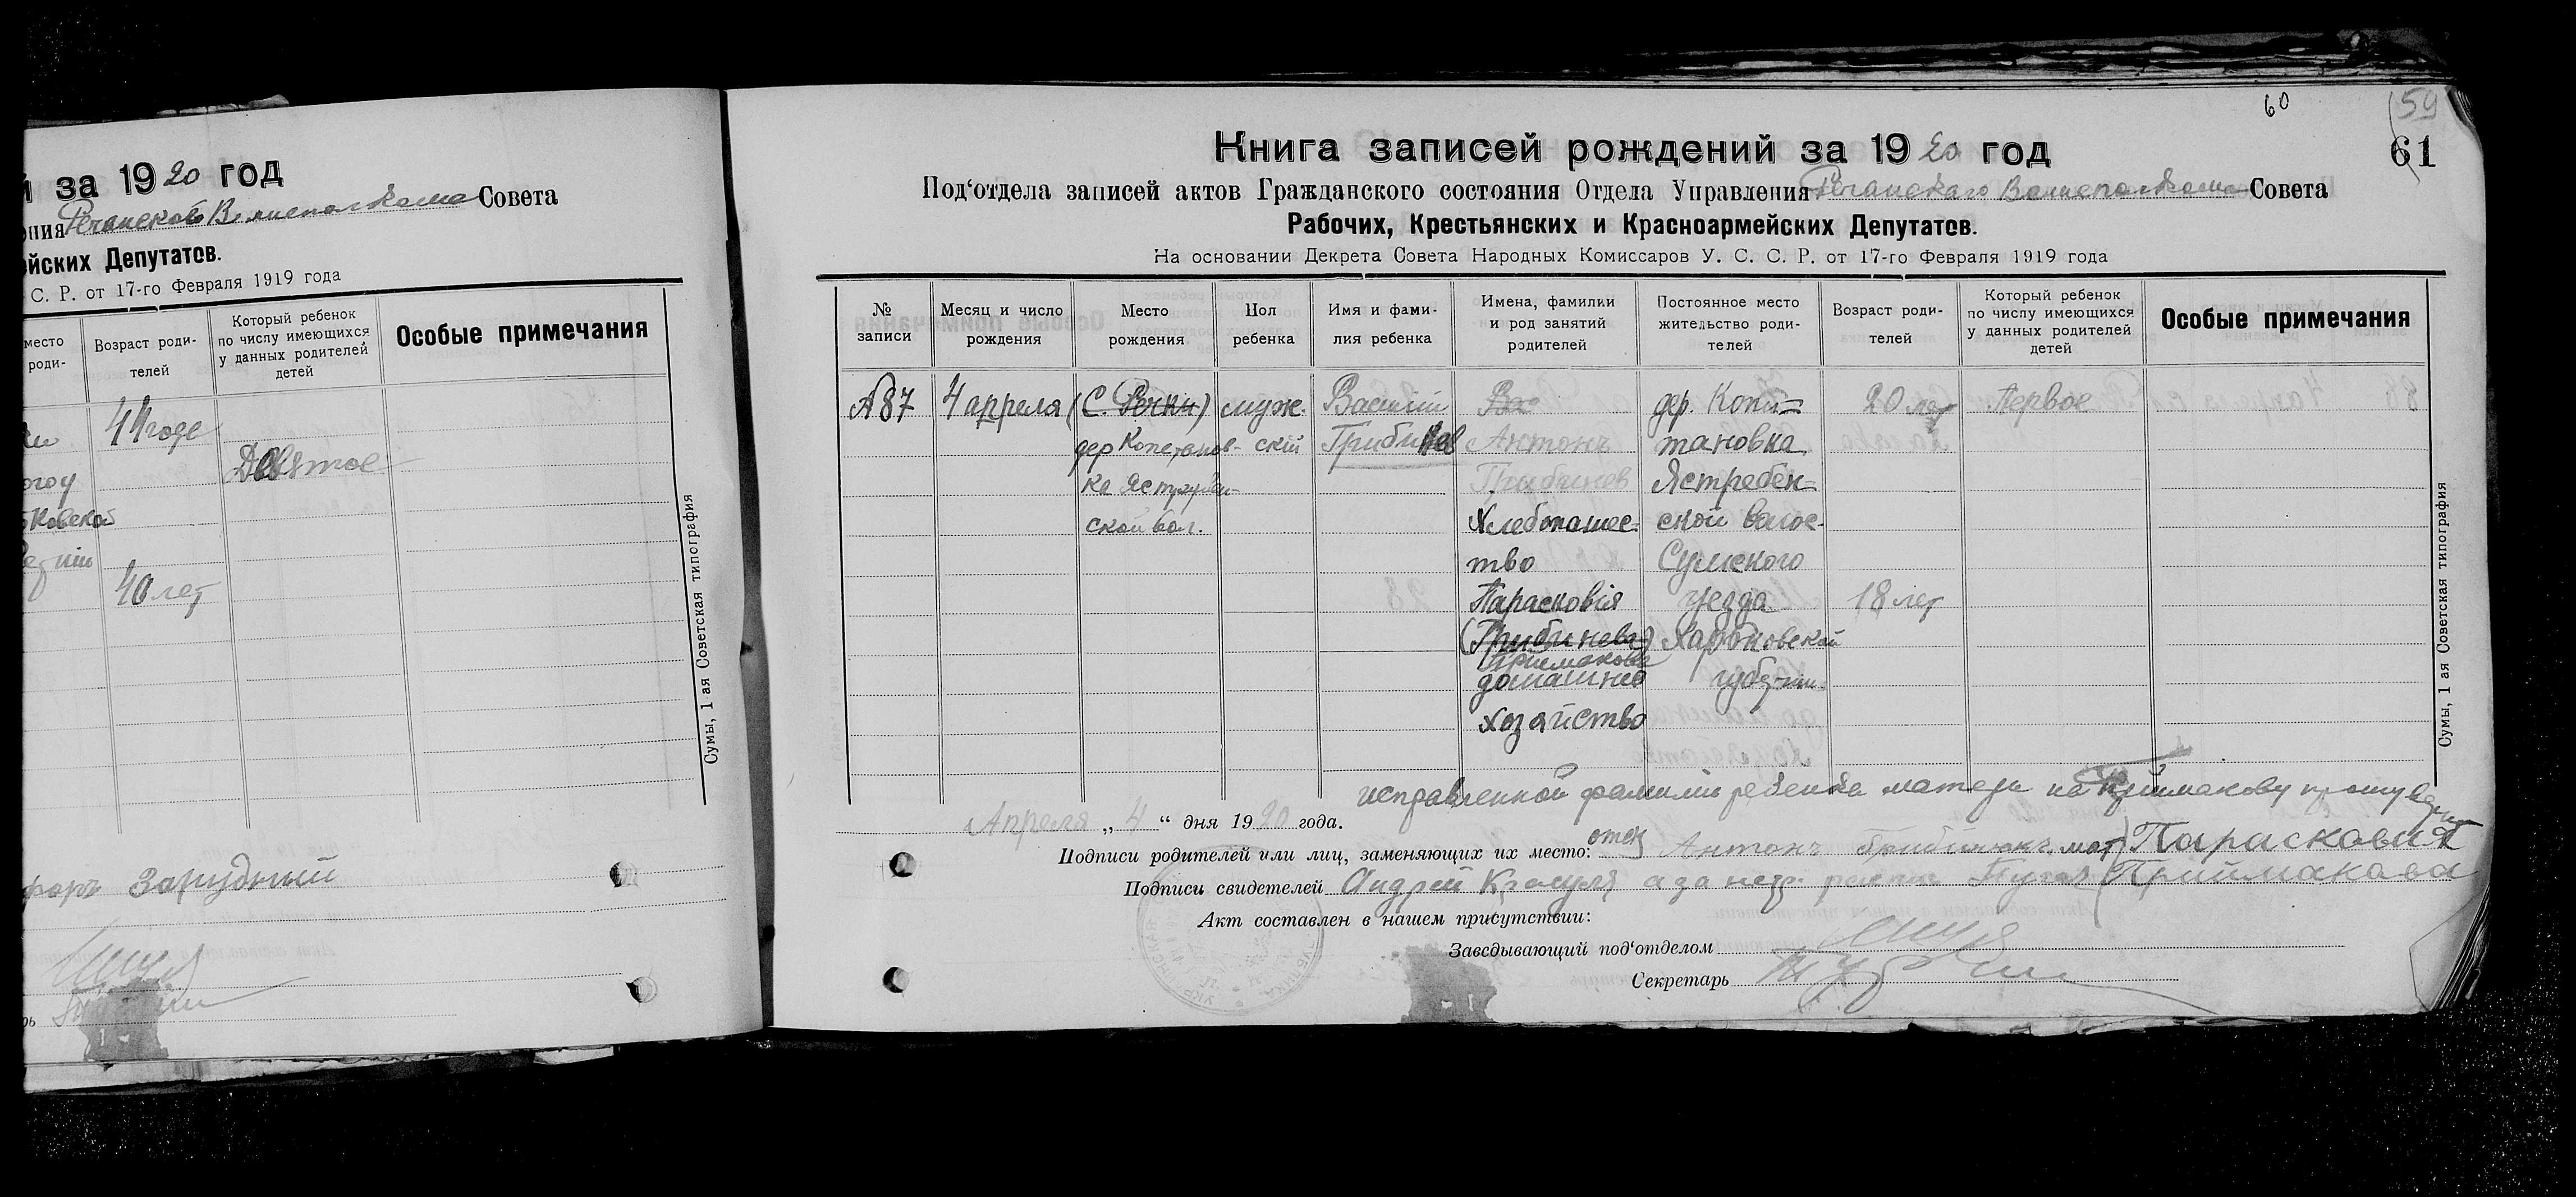 й за 1920 год
Совета
ейских Депутатов.
С. Р. от 17-го Февраля 1919 года
место
роди-
Возраст роди-
телей
Который ребенок
по числу имеющихся
у данных родителей
детей
Особые примечания
44 года
Девятое
40 лет
Сумы, 1 ая Советская типография
Зарудный
60
59
61
Книга записей рождений за 1920 год
Под‘отдела записей актов Гражданского состояния Отдела Управления Речанского Волисполкома Совета
Рабочих, Крестьянских и Красноармейских Депутатов.
На основании Декрета Совета Народных Комиссаров У. С. С. Р. от 17-го Февраля 1919 года
№
записи
Месяц и число
рождения
Место
рождения
Пол
ребенка
Имя и фами-
лия ребенка
Имена, фамилии
и род занятий
родителей
Постоянное место
жительство роди-
телей
Возраст роди-
телей
Который ребенок
по числу имеющихся
у данных родителей
детей
Особые примечания
№ 87
4 апреля
(С. Речки)
дер Копетанов-
ка
ской вол.
муж-
ской
Василий
Антонъ
Хлебопашес-
тво
Парасковія
(Грибинева)
Приймакова
домашнее
хозяйство
дер. Копи-
тановка
Ястребен-
ской волос.
Сумского
уезда
Харьковской
губернии.
20 лет
18 лет
Первое
Сумы, 1 ая Советская типография
исправленной фамилии ребенка матери на Приймакову прошу
Апреля „ 4 “ дня 1920 года.
Подписи родителей или лиц, заменяющих их место: отец Антонъ мат Парасковия
Подписи свидетелей Андрей а за негр. Приймакова
Акт составлен в нашем присутствии:
Заведывающий под‘отделом
Секретарь